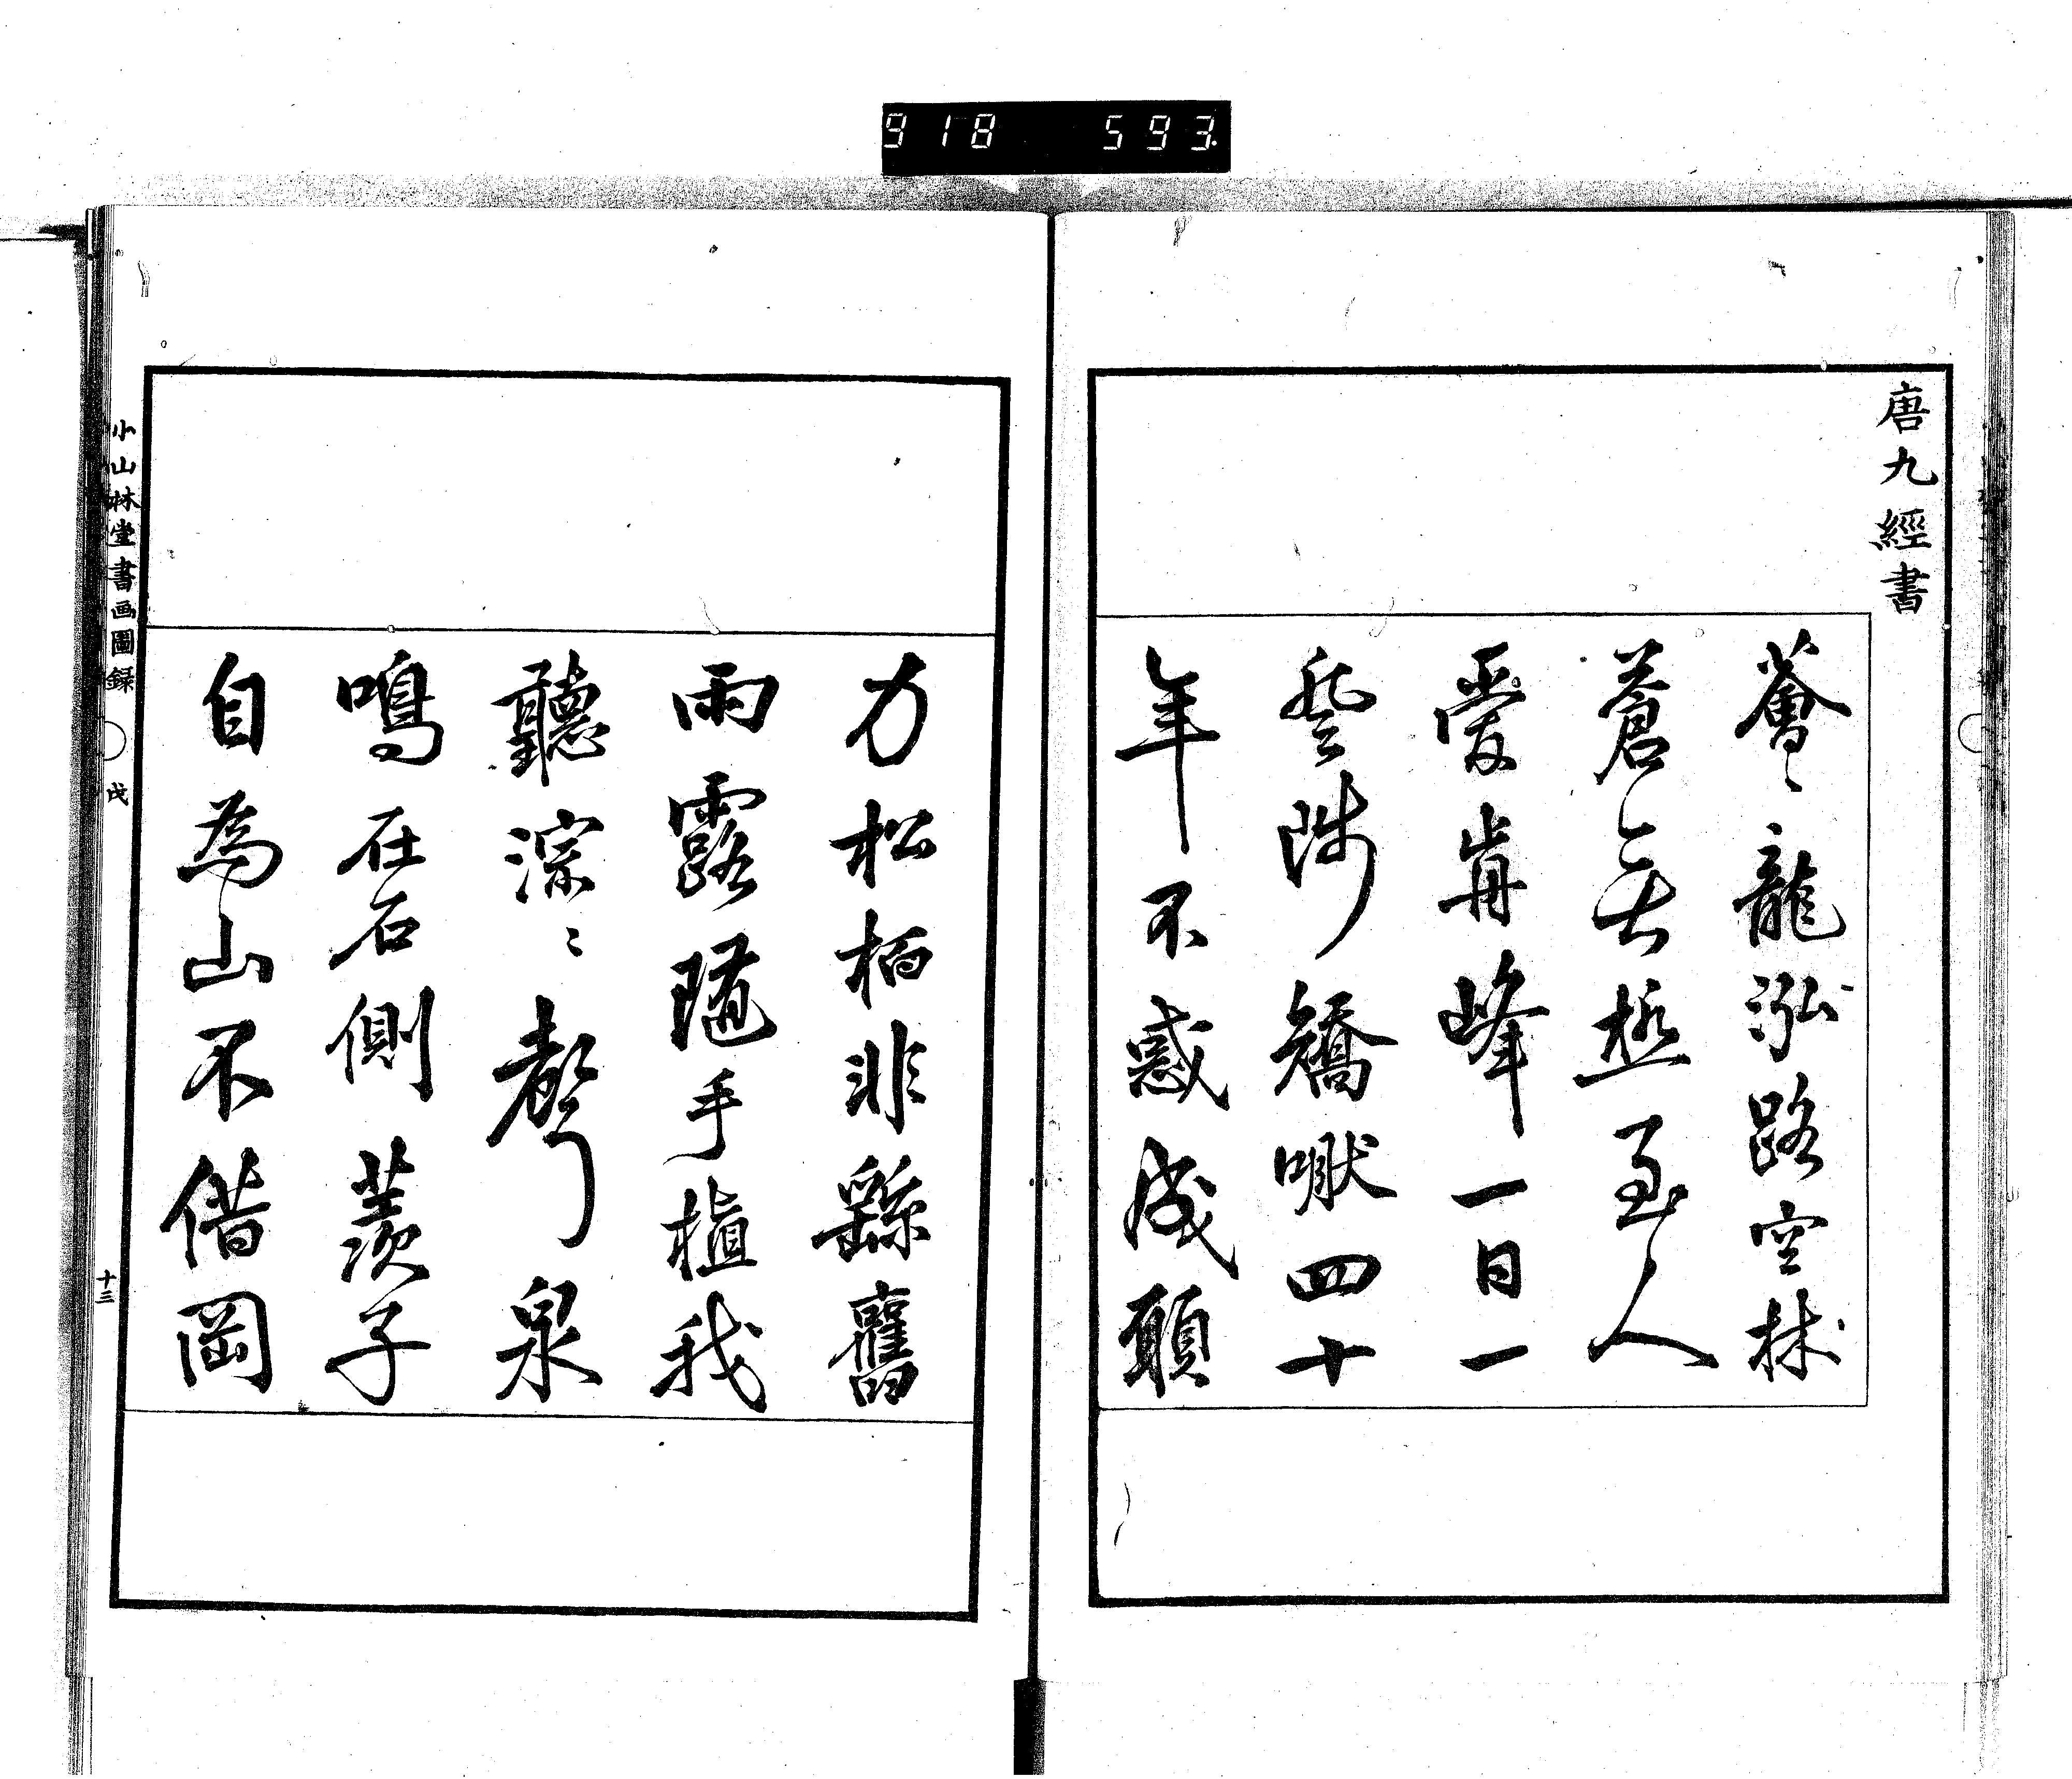 918 593
唐九經書
薈〻龍泓路空林
蒼無極至人
愛前峰一日一
登陟矯獸四十
年不惑成願
力松栢非繇舊
雨露隨手植我
聽淙〻聲泉
鳴在石側羨子
自為山不借岡
小山林堂書画圖録
戊
十三